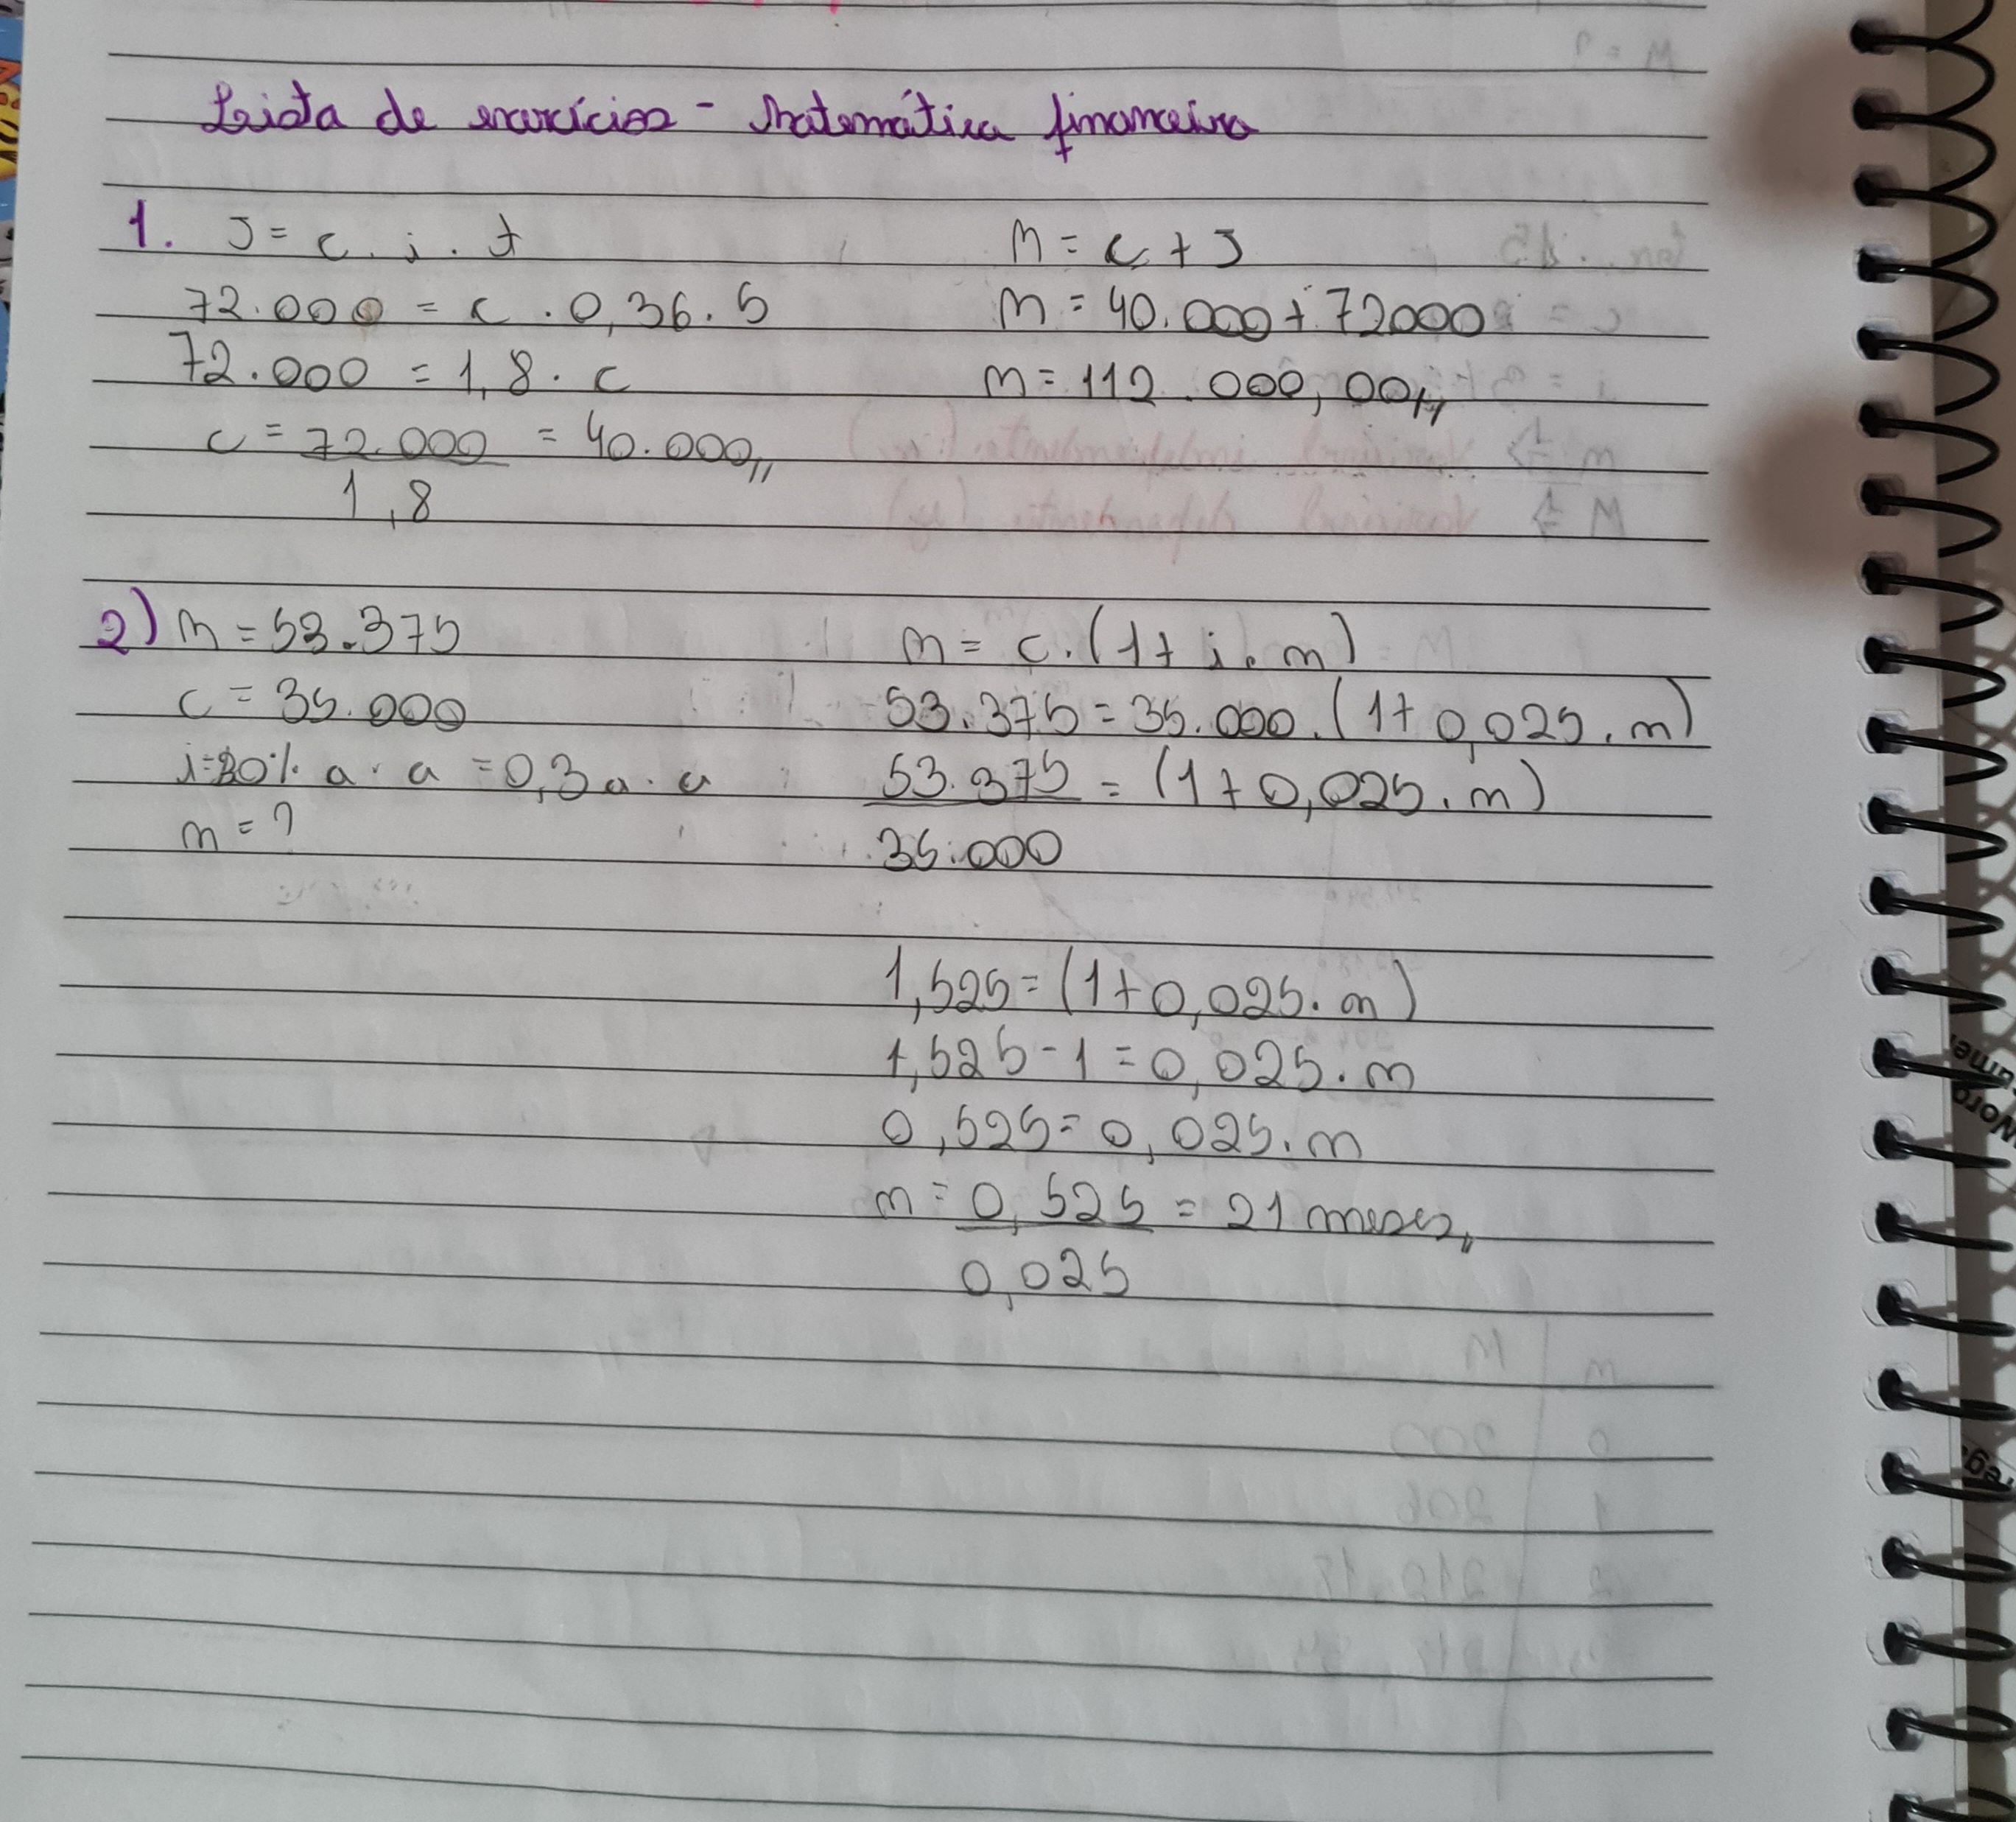 Lista de exercícios - Matemática financeira
1. J = c . i . t
72.000 = c . 0,36 . 5
72.000 = 1,8 . c
c = 72.000 = 40.000,,
1,8
M = c + J
M = 40.000 + 72000
M = 112.000,00,,
2) M = 53.375
c = 35.000
i = 30% a.a = 0,3 a.a
n = ?
M = c.(1+ i.n)
53.375 = 35.000.(1+0,025.n)
53.375 = (1+0,025.n)
35.000
1,525 = (1+0,025.n)
1,525 - 1 = 0,025.n
0,525 = 0,025.n
n = 0,525 = 21 meses,,
0,025